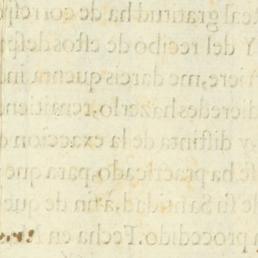 eal gratitud ha de corresp
Y del recibo de estos desp
diere, me dareis quenta
diredes hazerlo, remitien
uy distinta de la exaccion
se ha practicado, para que
de su Santidad, à fin de que
procedido. Fecha en